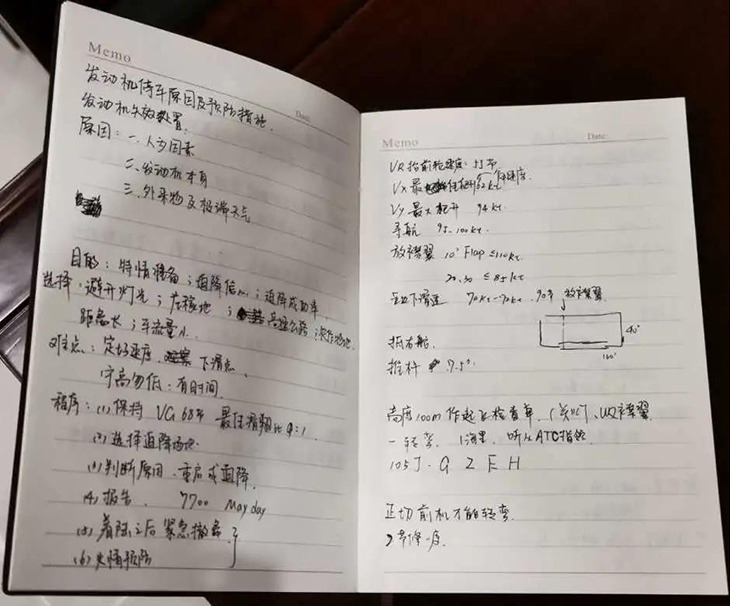 Memo
Date:
发动机停车原因及预防措施.
发动机失效处置.
原因: 一.人为因素
二.发动机本身
三.外来物及极端天气
目的: 特情准备; 迫降信心; 迫降成功率.
选择: 避开灯光; 庄稼地; 高速公路;
距离长; 车流量小.
难点: 定好速度. 下滑点.
宁高勿低: 有时间.
程序: (1) 保持 VG 68节 最佳滑翔比 9:1.
(2) 选择迫降场地.
(3) 判断原因. 重启或迫降.
(4) 报告. 7700 Mayday
(5) 着陆之后 紧急撤离
(6) 火情预防
Memo
Date:
VR 抬前轮速度: 55节
Vx 最 62kt.
Vy 最大 74kt.
导航 95-100kt.
放襟翼 10° Flap ≤110kt.
20.30 ≤85kt
下滑速 70kt-
放襟翼.
抵右舵.
推杆 7.5°.
高度100m 作起飞检查单. (关灯)、收襟翼
一转弯. 1海里. 听从ATC指令
105 J. G Z F H
正切前机才能转弯.